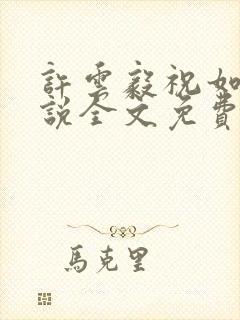 許雲毅祝如
說全文免費
馬克里